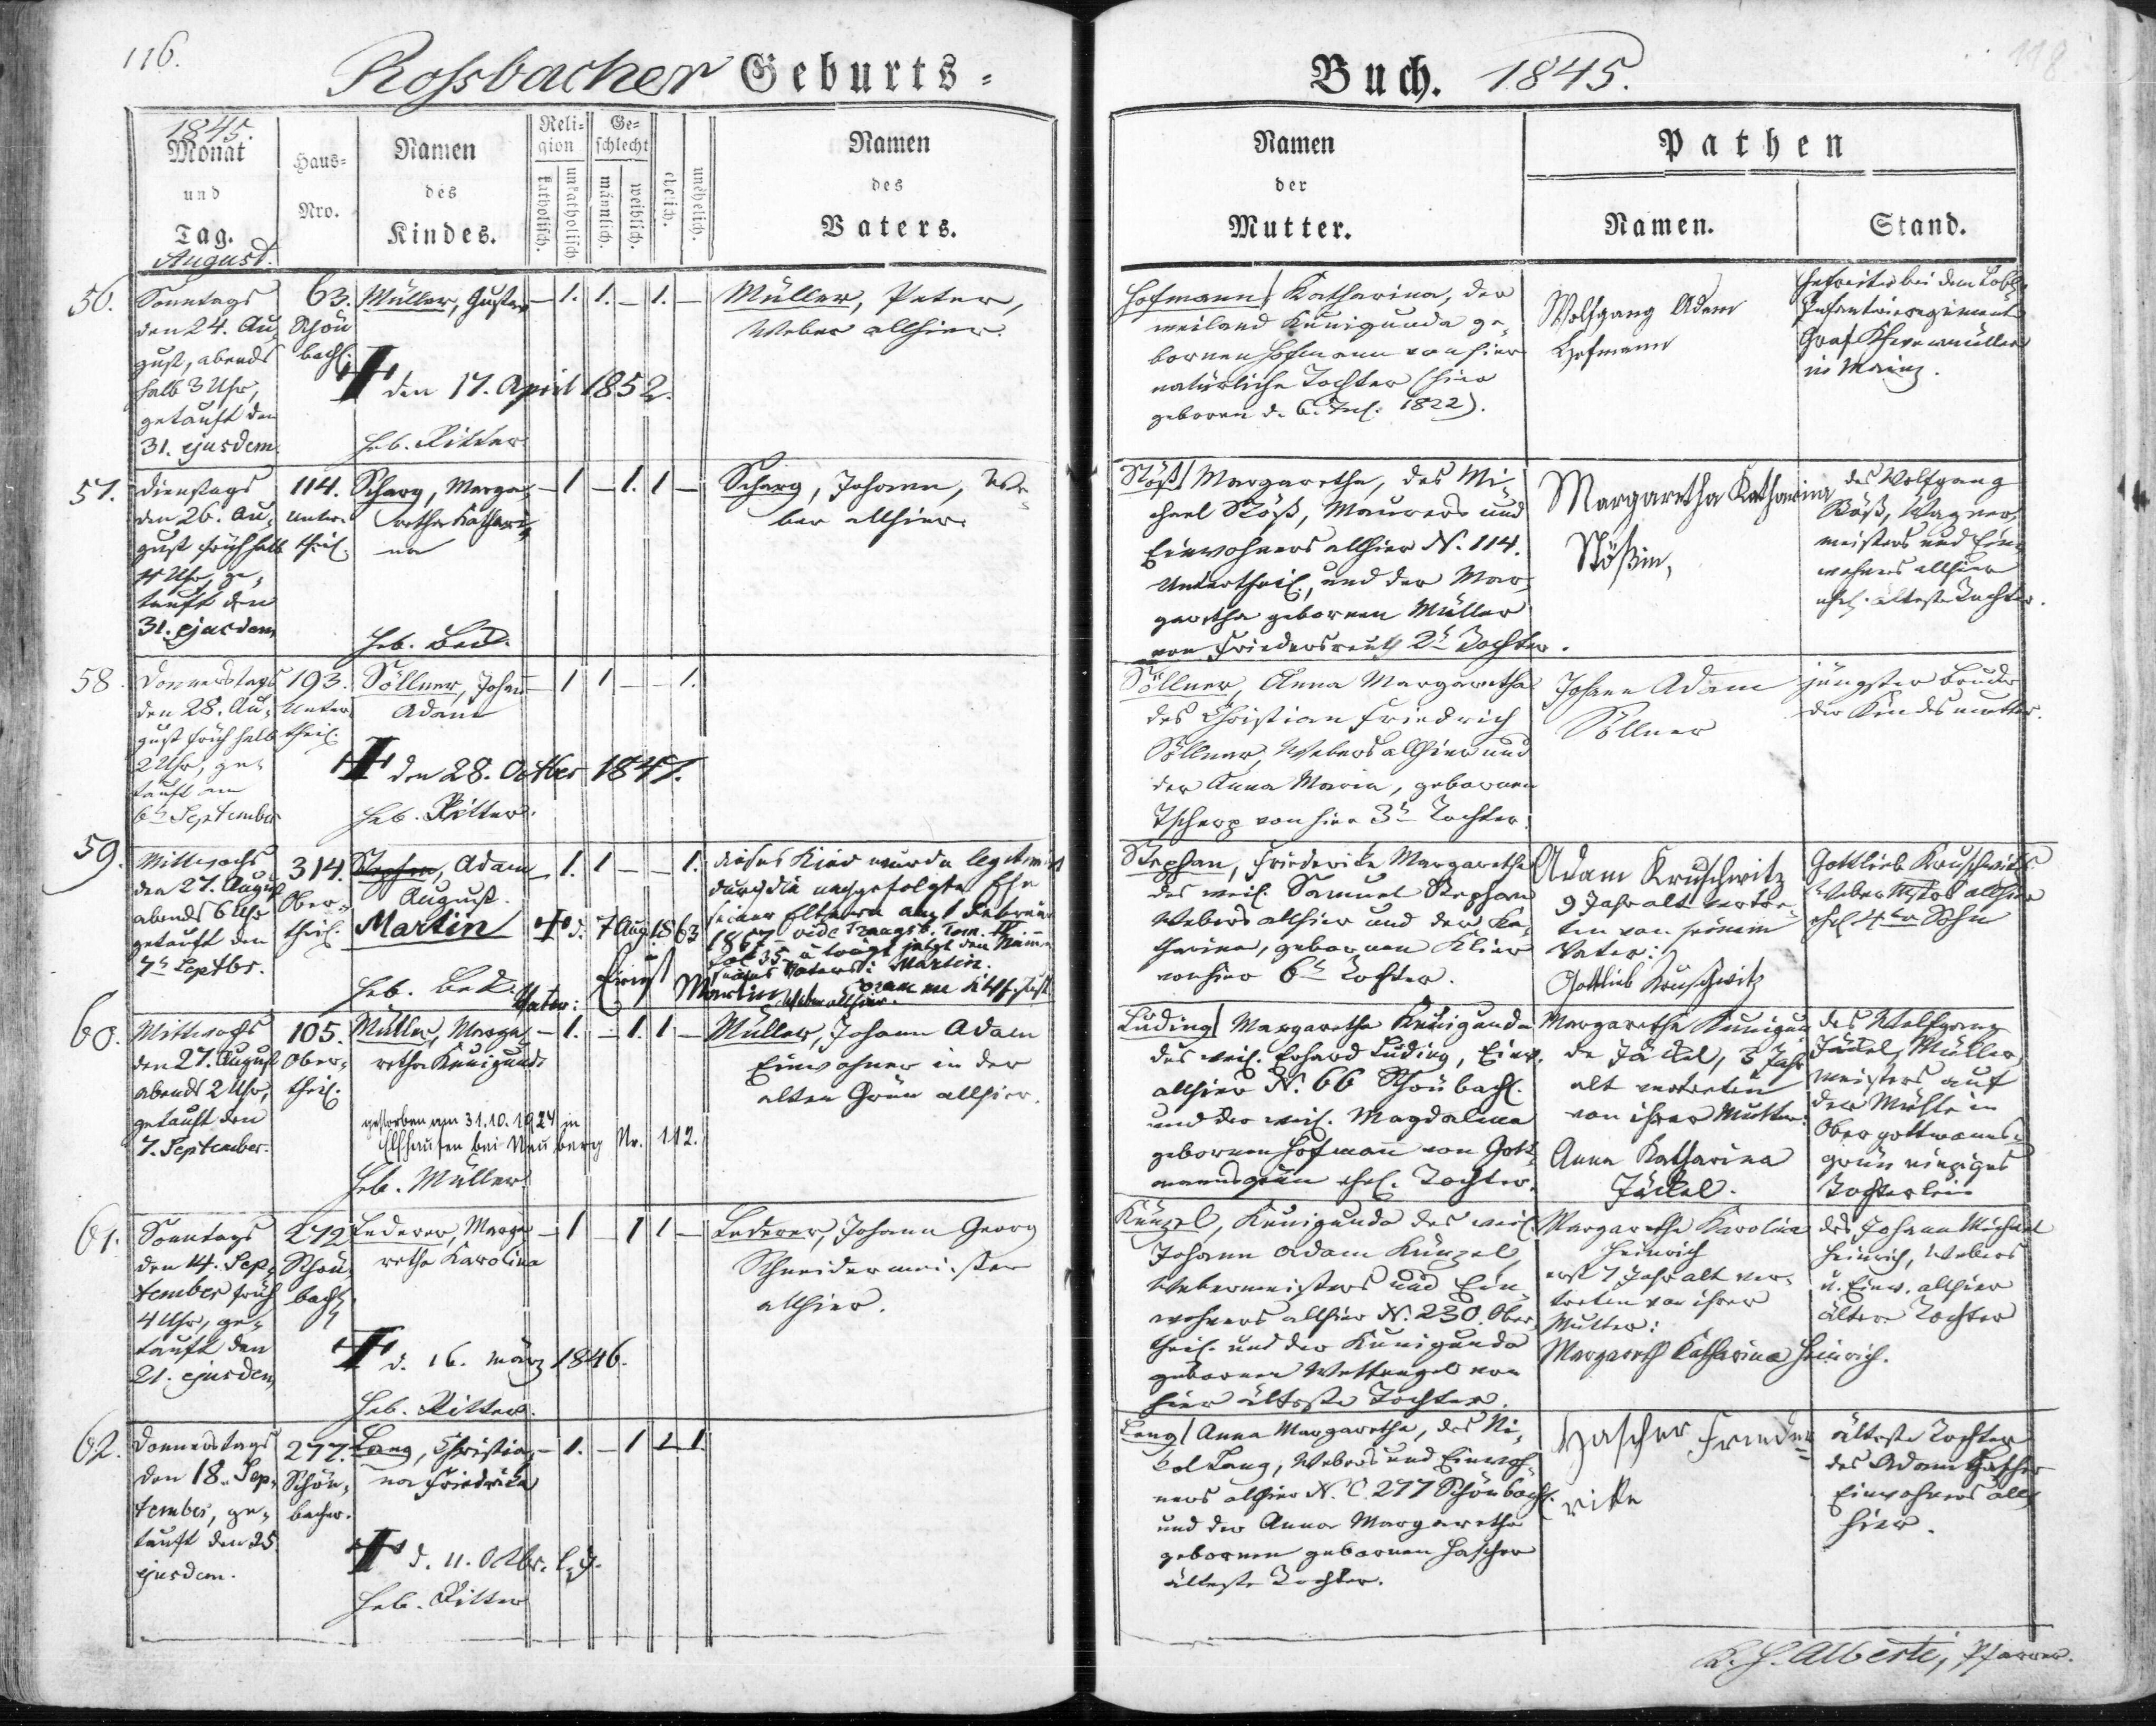 116.
118
Rossbacher Geburts=
Buch. 1845.
1845.
Monat
und
Tag.
August.
Haus=
Nro.
Namen
des
Kindes.
Reli=
gion
katholisch.
unkatholisch
Ge=
schlecht
männlich.
weiblich.
ehelich.
unehelich.
Namen
des
Vaters.
Namen
der
Mutter.
Pathen
Namen.
Stand.
56.
Sonntags
den 24. Au-
gust, abends
halb 3 Uhr,
getauft den
31. ejusdem.
63.
Schön
bach.
Müller, Gustav
den 17. April 1852.
Heb. Ritter
— 1. 1. — 1. —
Müller, Peter,
Weber allhier.
Hofmann, Katharina, der
weiland Kunigunda ge-
bornen Hofmann von hier
natürliche Tochter (hier
geboren d. 6. 1822).
Wolfgang Adam
Hofmann
Gefreiter bei dem Löbl.
Infanterieregiment
Graf Khevenmüller
in Mainz.
57.
Dienstags
den 26. Au-
gust früh halb
4 Uhr, ge-
tauft den
31. ejusdem
114.
Unter-
theil.
Scharg, Marga-
retha Kathari-
na
Heb. Beck.
— 1 — 1. 1 —
Scharg, Johann, We-
ber allhier
Stöß, Margaretha, des Mi-
chael Stöß, Maurers und
Einwohners allhier N. 114.
Untertheil, und der Mar-
garetha gebornen Müller
von Friedersreuth 2te Tochter.
Margaretha Katharina
Stößin,
des Wolfgang
Stöß, Wagner-
meisters und Ein-
wohners allhier
ehel. älteste Tochter.
58.
Donnerstags
den 28. Au-
gust früh halb
2 Uhr, ge-
tauft am
6ten September
193.
Unter
theil.
Söllner, Johann
Adam
den 28. Octber 1847.
Heb. Ritter.
— 1 1 — — 1.
Söllner, Anna Margaretha
des Christian Friedrich
Söllner, Webers allhier und
der Anna Maria, gebornen
von hier 3te Tochter.
Johann Adam
Söllner
jüngster Bruder
der Kindesmutter.
59.
Mittwochs
den 27. August
abends 6 Uhr
getauft den
7ten Septbr.
314.
Ober-
theil.
Stephan, Adam
August.
Martin
d. 7 Aug. 1863
Heb. Beck.
— 1. 1 — — 1.
dieses Kind wurde legitimirt
durch die nachgefolgte Ehe
seiner Eltern am 1 Februar
fol 35. u trägt jetzt den Namen
seines Vaters: Martin.
Vater:
Martin Weber allhier.
Stephan, Friederike Margaretha
des weil. Samuel Stephan
Webers allhier und der Ka-
tharina, gebornen Klier
von hier 6te Tochter.
Adam Kruschwitz
9 Jahr alt vertre-
ten von seinem
Vater:
Gottlieb Kruschwitz
Gottlieb Kruschwitz
Weber Mstrs allhier
ehel 4ter Sohn
60.
Mittwochs
den 27. August
abends 2 Uhr,
getauft den
7. September.
105.
Ober-
theil.
Müller, Marga-
retha Kunigunda
gestorben am 31.10.1924 in
Elfhausen bei Neuberg Nr. 112.
Heb. Müller
— 1. — 1. 1 —
Müller, Johann Adam
Einwohner in der
alten Grün allhier.
Lüding, Margaretha Kunigunda
des weil. Erhard Lüding, Einw.
allhier N. 66 Schönbach.
und der weil. Magdalena
gebornen Hofmann von Gott-
mannsgrün ehel. Tochter.
Margaretha Kunigun
de Jäckel, 3 Jahr
alt vertreten
von ihrer Mutter:
Anna Katharina
Jäckel.
des Wolfgang
Jäckel, Müller-
meisters auf
der Mühle in
Obergottmanns-
grün einziges
Töchterlein
61.
Sonntags
den 14. Sep-
tember früh
4 Uhr, ge-
tauft den
21. ejusdem
272
Schön-
bach
Lederer, Marga-
retha Karolina
d. 16. März 1846.
Heb. Ritter.
— 1 — 1 1 —
Lederer, Johann Georg
Schneidermeister
allhier.
Künzel, Kunigunda des weil.
Johann Adam Künzel,
Webermeisters und Ein-
wohners allhier N. 230. Ober-
theil. und der Kunigunda
gebornen Wettengel von
hier älteste Tochter.
Margaretha Karolina
Heinrich
erst 7 Jahr alt ver-
treten von ihrer
Mutter:
Margareth Katharina Heinrich.
des Johann Michael
Heinrich, Webers
u. Einw. allhier
ältere Tochter
62.
Donnerstags
den 18. Sep-
tember, ge-
tauft den 25
ejusdem.
277.
Schön-
bacher.
Lang, Christia-
na Friedrika
d. 11. Oktbr.
Heb. Ritter
— 1. — 1 1 1
Lang, Anna Margaretha, des Ni-
kol Lang, Webers und Einwoh-
ners allhier N. C. 277 Schönbach.
und der Anna Margaretha
gebornen gebornen Hascher
älteste Tochter.
Hascher Friede-
rike
älteste Tochter
des Adam Hascher
Einwohners all-
hier.
Alberti, Pfarrer.